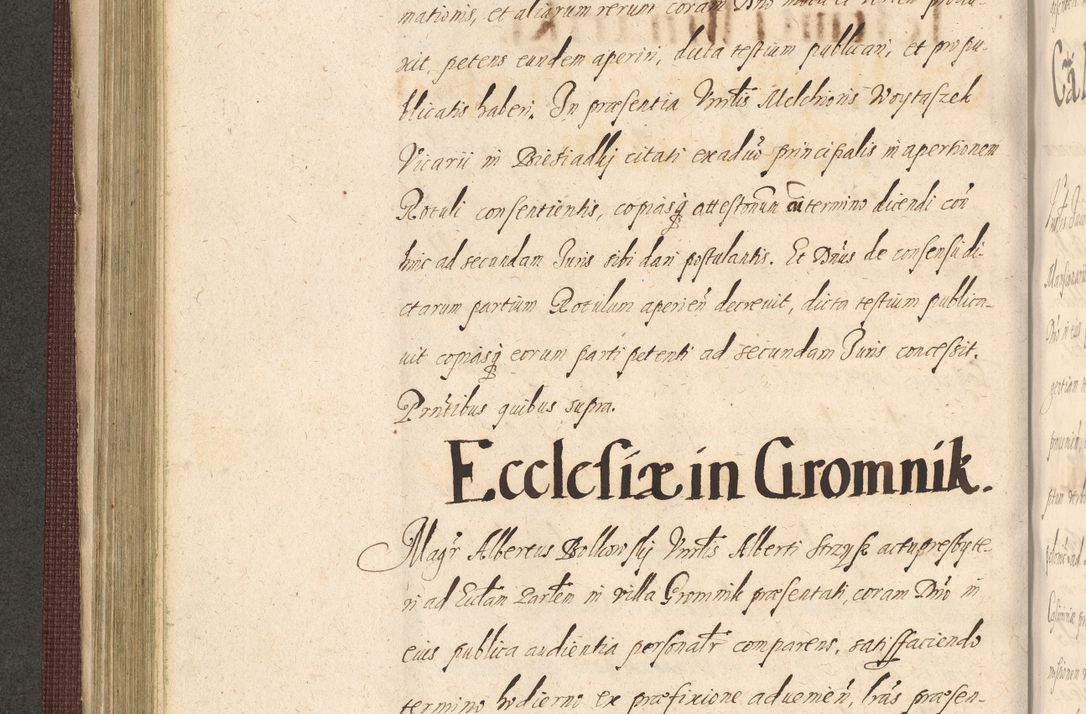 mationis, et aliarum rerum coram Dno
xit, petens eundem aperiri, dicta testium publicari, et propu-
blicatis haberi. In præsentia Vrnlis Melchioris Woytaszek
Vicarii in Bieliadlij citati ex aduo principalis in apertionem
Rotuli consentientis, copiasq attestonum cu termino dicendi con
hinc ad secundam Juris sibi dari postulantis. Et Dnus de consensu di-
ctarum partium Rotulum aperien decreuit, dicta testium publica-
uit copiasq eorum parti petenti ad secundam Juris concessit.
Prntibus quibus supra.
Ecclesiæ in Gromnik.
Magr Albertus Vrnlis Alberti Strzysz actu presbyte-
ri ad Ecclam Parlem in villa Gromnik præsentati, coram Dno in
eius publica audientia personalr comparens, satisfaciendo
termino hodierno ex præfixione aduemen, lras præsen-